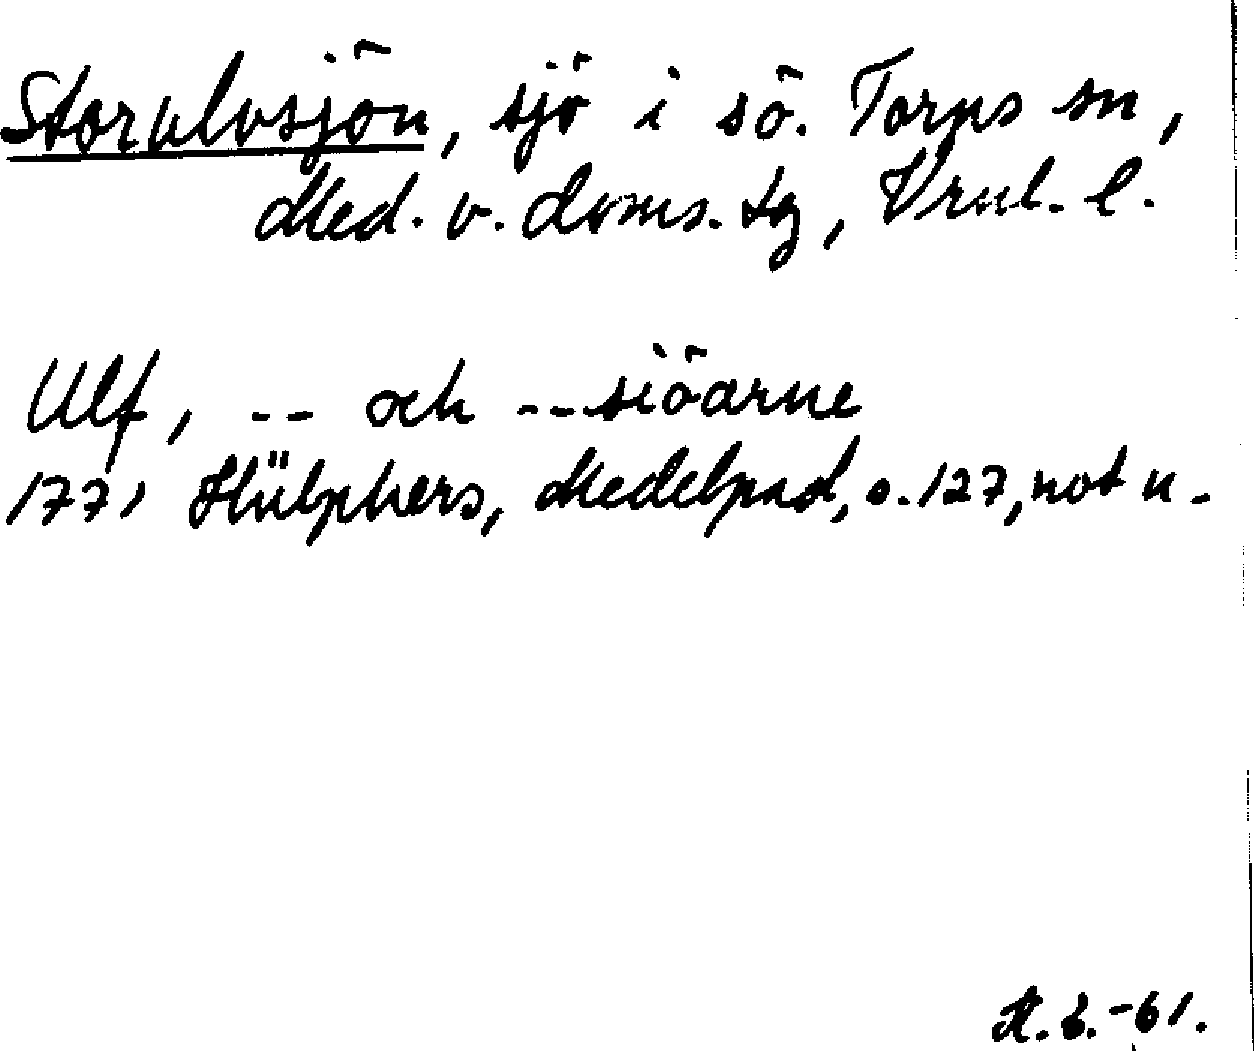 Storulvsjön, sjö i sö. Torps sn,
Med. v. doms. tg, Vrnl. l.
Ulf, -- och --siöarne
1771 Hülphers, Medelpad, s. 127, not u.
A.B.-61.